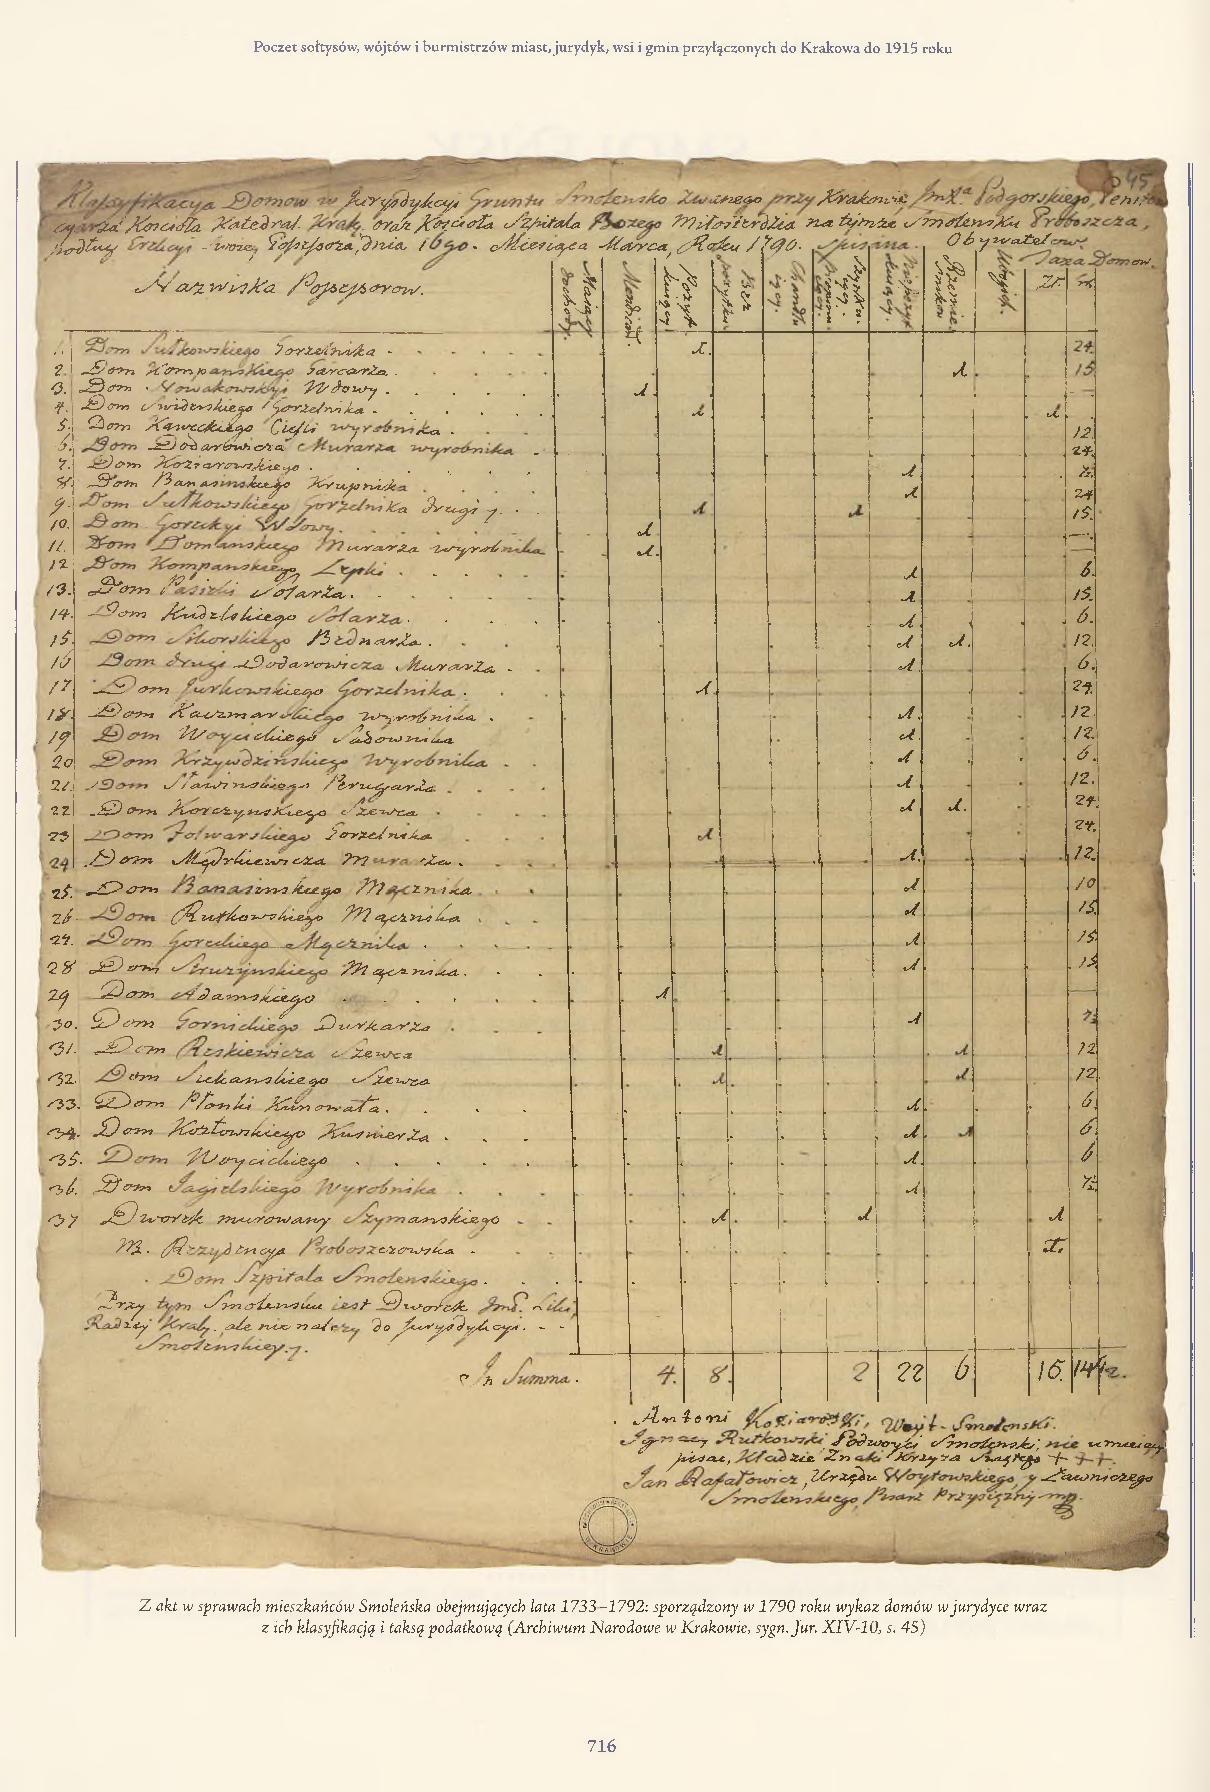 Poczet sołtysów, wójtów i burmistrzów miast, jurydyk, wsi i gmin przyłączonych do Krakowa do 1915 roku
45
Klassyfikacya Domow w Jurysdykcyi Gruntu Smolensko zwanego przy Krakowie, Podgorskiego,
Koscioła Katedral. Krak. oraz Koscioła Szpitala Bozego Miłosierdzia na tymze Smolensku Proboszcza,
podług dnia 16go. Miesiąca Marca, Roku 1790. spisana.
Obywatelow.
Nazwiska Possessorow.
Maiący dochody.
Bez pozytku.
Rzemieśnikow
Ubogich.
Taxa Domow.
Zł. gr.
1. Dom Sutkowskiego Gorzelnika 1. 24.
2. Dom Kompanskiego Garcarza 1. 15
3. Dom Nowakowskyi Wdowy 1.
4. Dom Swiderskiego Gorzelnika 1 1
5. Dom Kaweckiego Cieśli wyrobnika 12
6. Dom Dodarowicza Murarza wyrobnika 24.
7. Dom Koziarowskiego 1 7½
8. Dom Banasinskiego Krupnika 1 24
9. Dom Sutkowskiego Gorzelnika drugi 1 1 15.
10. Dom Goreckyi Wdowy. 1
11. Dom Domanskiego Murarza wyrobnika 1.
12 Dom Kompanskiego 1 6.
13. Dom Pasierki Solarza. 1 15.
14. Dom Kudelskiego Solarza. 1. 6.
15. Dom Sikorskiego Bednarza. 1 1. 12.
16 Dom drugi Dodarowicza Murarza 1 6.
17 Dom Jurkowskiego Gorzelnika. 1. 24.
18. Dom Kaczmarskiego wyrobnika 1. 12.
19 Dom Woycickiego Sadownika 1. 12.
20 Dom Krzywdzińskiego Wyrobnika 1 6.
21. Dom Sławinskiego Perugarza 1. 12.
22 Dom Korczynskiego Szewca 1 1. 24.
23 Dom Folwarskiego Gorzelnika 1 24.
24 Dom Mędrkiewicza Murarza. 1. 12.
25. Dom Banasinskiego Mącznika 1 10
26 Dom Rutkowskiego Mącznika 1 15.
27. Dom Goreckiego Mącznika 1 15.
28 Dom Struzynskiego Mącznika. 1. 15.
29 Dom Adamskiego 1
30. Dom Gornickiego Durkarza 1 7½
31. Dom Reskiewicza Szewca 1 1. 12.
32. Dom Siekanskiego Szewca 1. 1. 12.
33. Dom Płonki Kunowała. 1. 6.
34. Dom Kozłowskiego Kusnierza 1. 1 6.
35. Dom Woycickiego 1. 6
36. Dom Jagielskiego Wyrobnika 1 7½
37 Dworek murowany Szymanskiego 1. 1. 1
Rezydencya Proboszczowska 1.
Dom Szpitala Smolenskiego.
Przy tym Smolensku iest Dworek
Radzcy Krak. ale nie nalezy do Jurysdykcyi
Smolenskiey.
In Summa. 4. 8. 2 22 6 15. 14
Antoni Koziarowski, Woyt Smolenski.
Ignacy Rutkowski Podwoyci Smolenski, nie umieiący
pisac, kładzie Znaki Krzyza Swiętego + + +.
Jan Rafałowicz, Urzędu Woytowskiego y Ławniczego
Smolenskiego, Pisarz Przysięzny mp.
W KRAKOWIE
Z akt w sprawach mieszkańców Smoleńska obejmujących lata 1733–1792: sporządzony w 1790 roku wykaz domów w jurydyce wraz
z ich klasyfikacją i taksą podatkową (Archiwum Narodowe w Krakowie, sygn. Jur. XIV-10, s. 45)
716